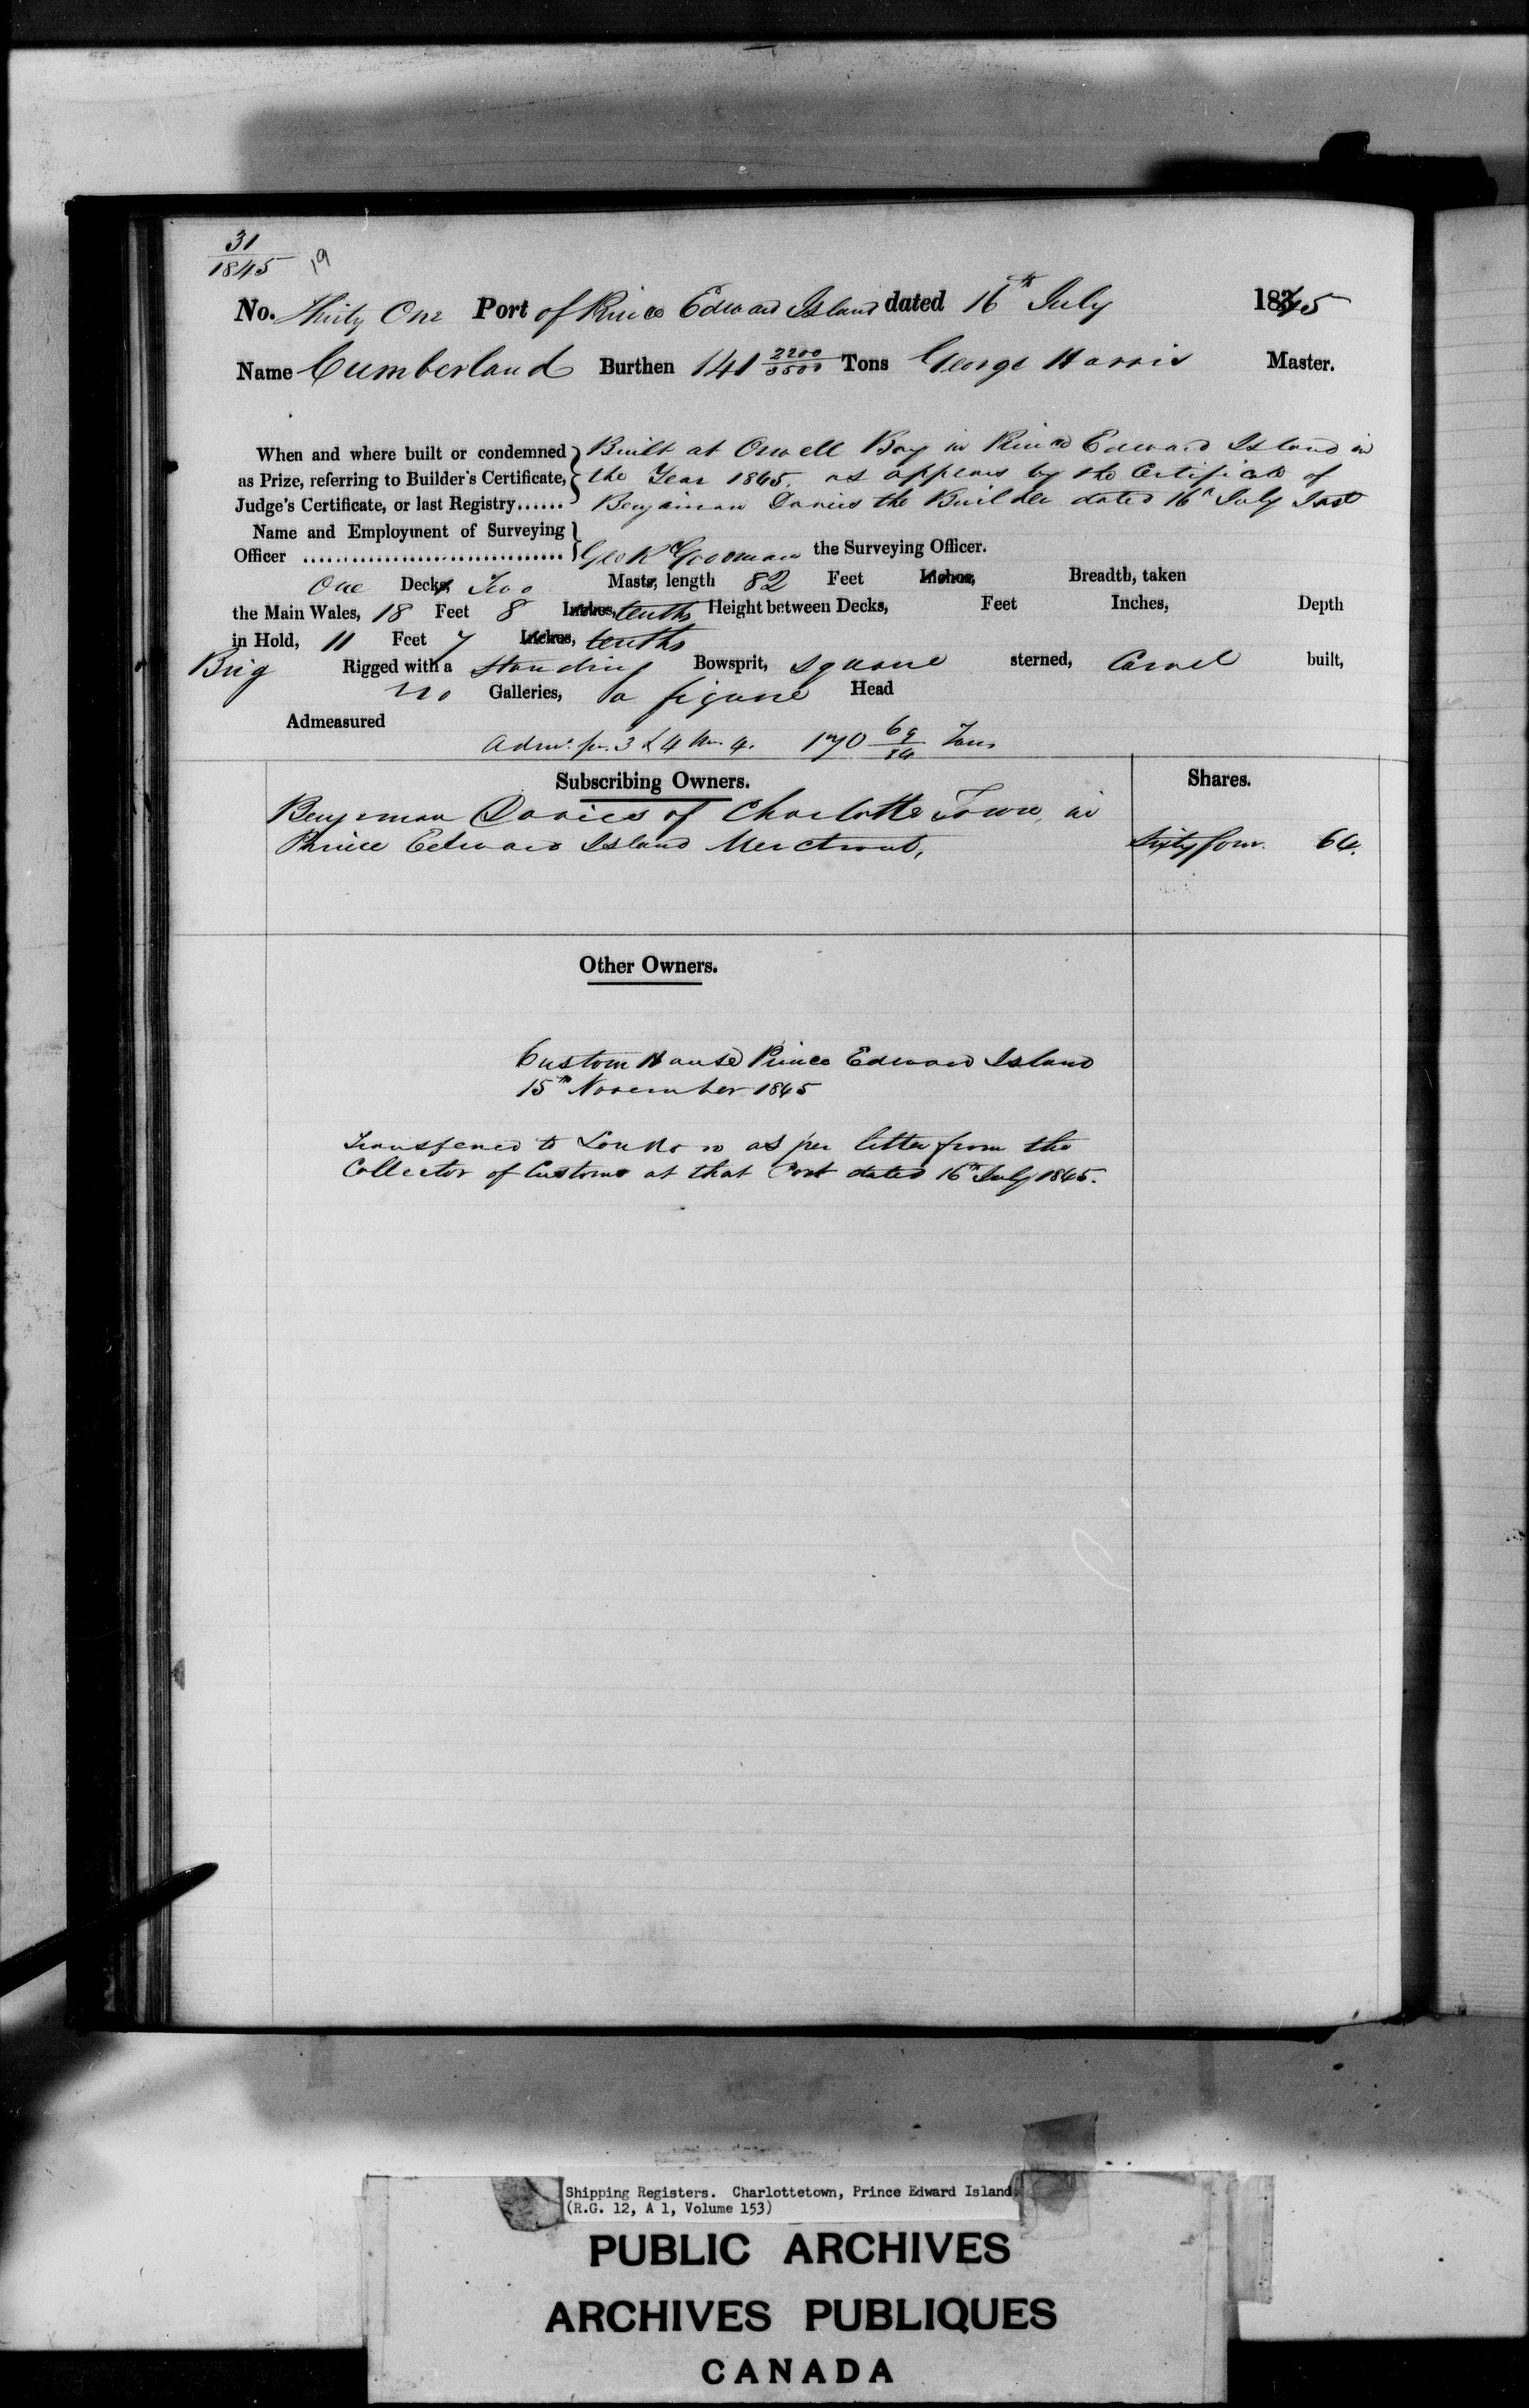 31
1845 19
No. Thirty One Port of Prince Edward Island dated 16th July 1845
Name Cumberland Burthen 141 2200/3500 Tons George Harris Master.
When and where built or condemned Built at Orwell Bay in Prince Edward Island in
as Prize, referring to Builder's Certificate, the Year 1845. as appears by the Certificate of
Judge's Certificate, or last Registry...... Benjamin Davies the Builder dated 16th July Inst
Name and Employment of Surveying
Officer ................................ Geo R Goodman the Surveying Officer.
One Decks Two Masts, length 82 Feet Inches, Breadth, taken
the Main Wales, 18 Feet 8 Inches, tenths Height between Decks, Feet Inches, Depth
in Hold, 11 Feet 7 Inches, tenths
Brig Rigged with a standing Bowsprit, square sterned, Carvel built,
no Galleries, a figure Head
Admeasured
170 69/94 Tons
Subscribing Owners. Shares.
Benjamin Davies of Charlotte Town, in
Prince Edward Island Merchant, Sixty four. 64.
Other Owners.
Custom House Prince Edward Island
15th November 1845
Transfered to London as per letter from the
Collector of Customs at that Port dated 16th July 1845.
Shipping Registers. Charlottetown, Prince Edward Island.
(R.G. 12, A 1, Volume 153)
PUBLIC ARCHIVES
ARCHIVES PUBLIQUES
CANADA